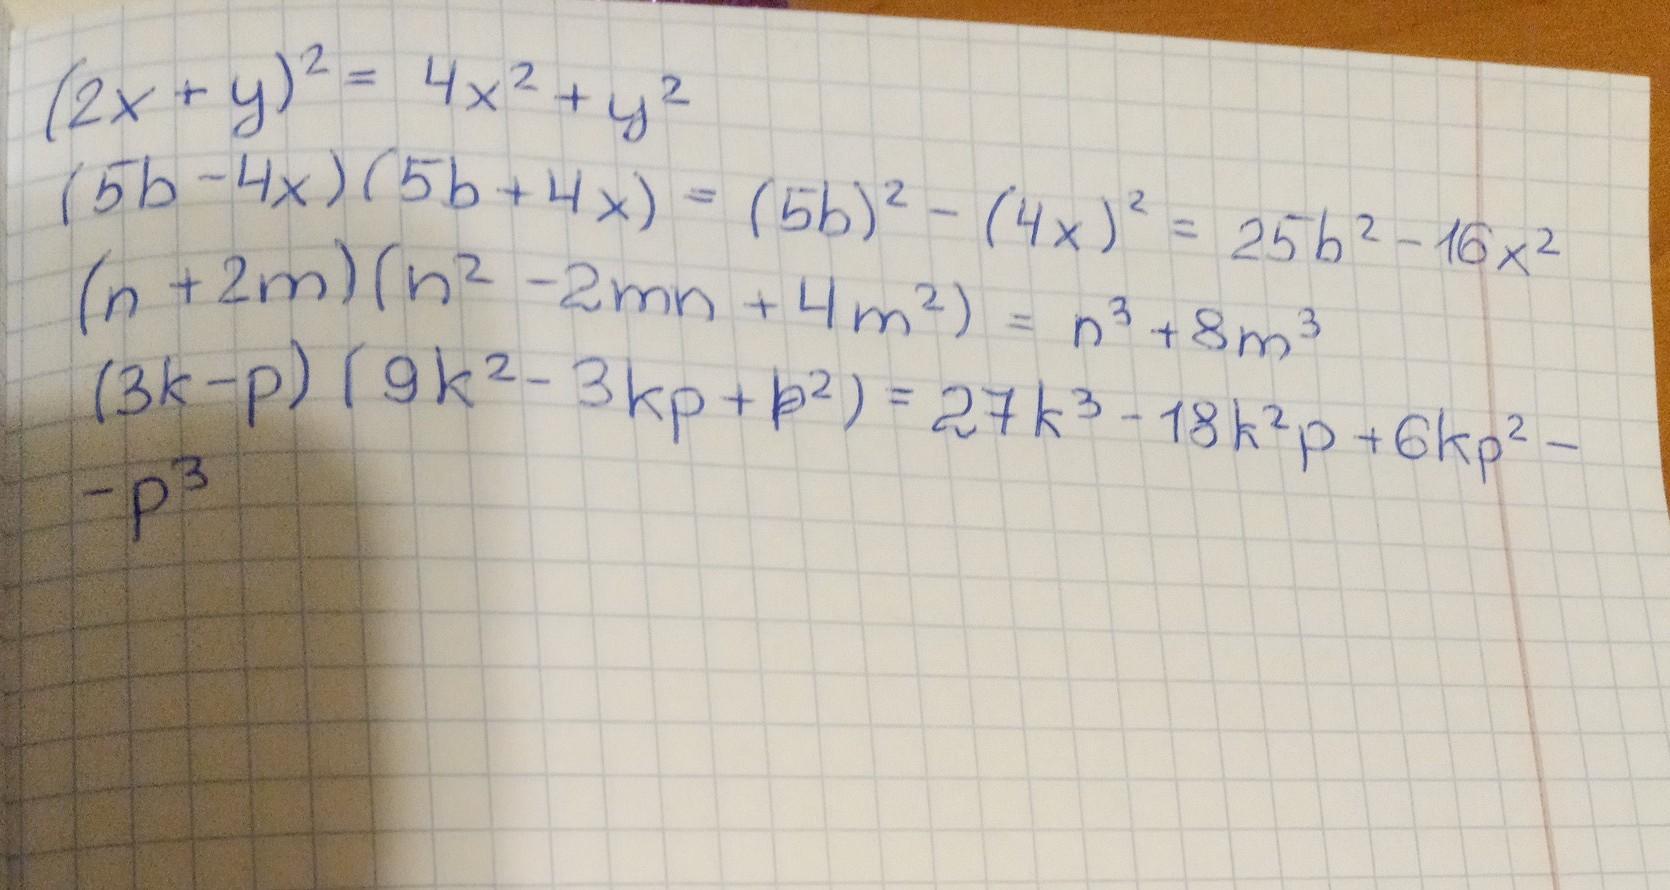 (2x + y)² = 4x² + y²
(5b - 4x)(5b + 4x) = (5b)² - (4x)² = 25b² - 16x²
(n + 2m)(n² - 2mn + 4m²) = n³ + 8m³
(3k - p)(9k² - 3kp + p²) = 27k³ - 18k²p + 6kp² -
- p³